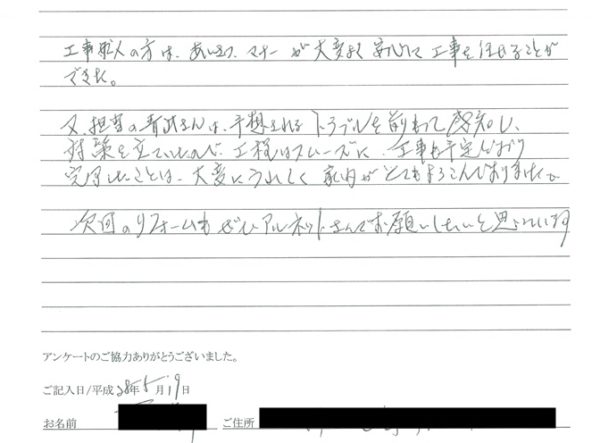 工事職人の方は、あいさつ、マナーが大変よく安心して工事を任せることが
できた。
又、担当の青井さんは、予想されるトラブルを前もって察知し、
対策を立てていたので、工程はスムーズに、工事も予定どおり
完了したことは、大変にうれしく家内がとてもよろこんでおりました。
次回のリフォームもぜひアルネットさんでお願いしたいと思っています
アンケートのご協力ありがとうございました。
ご記入日/平成28年5月19日
お名前 ご住所